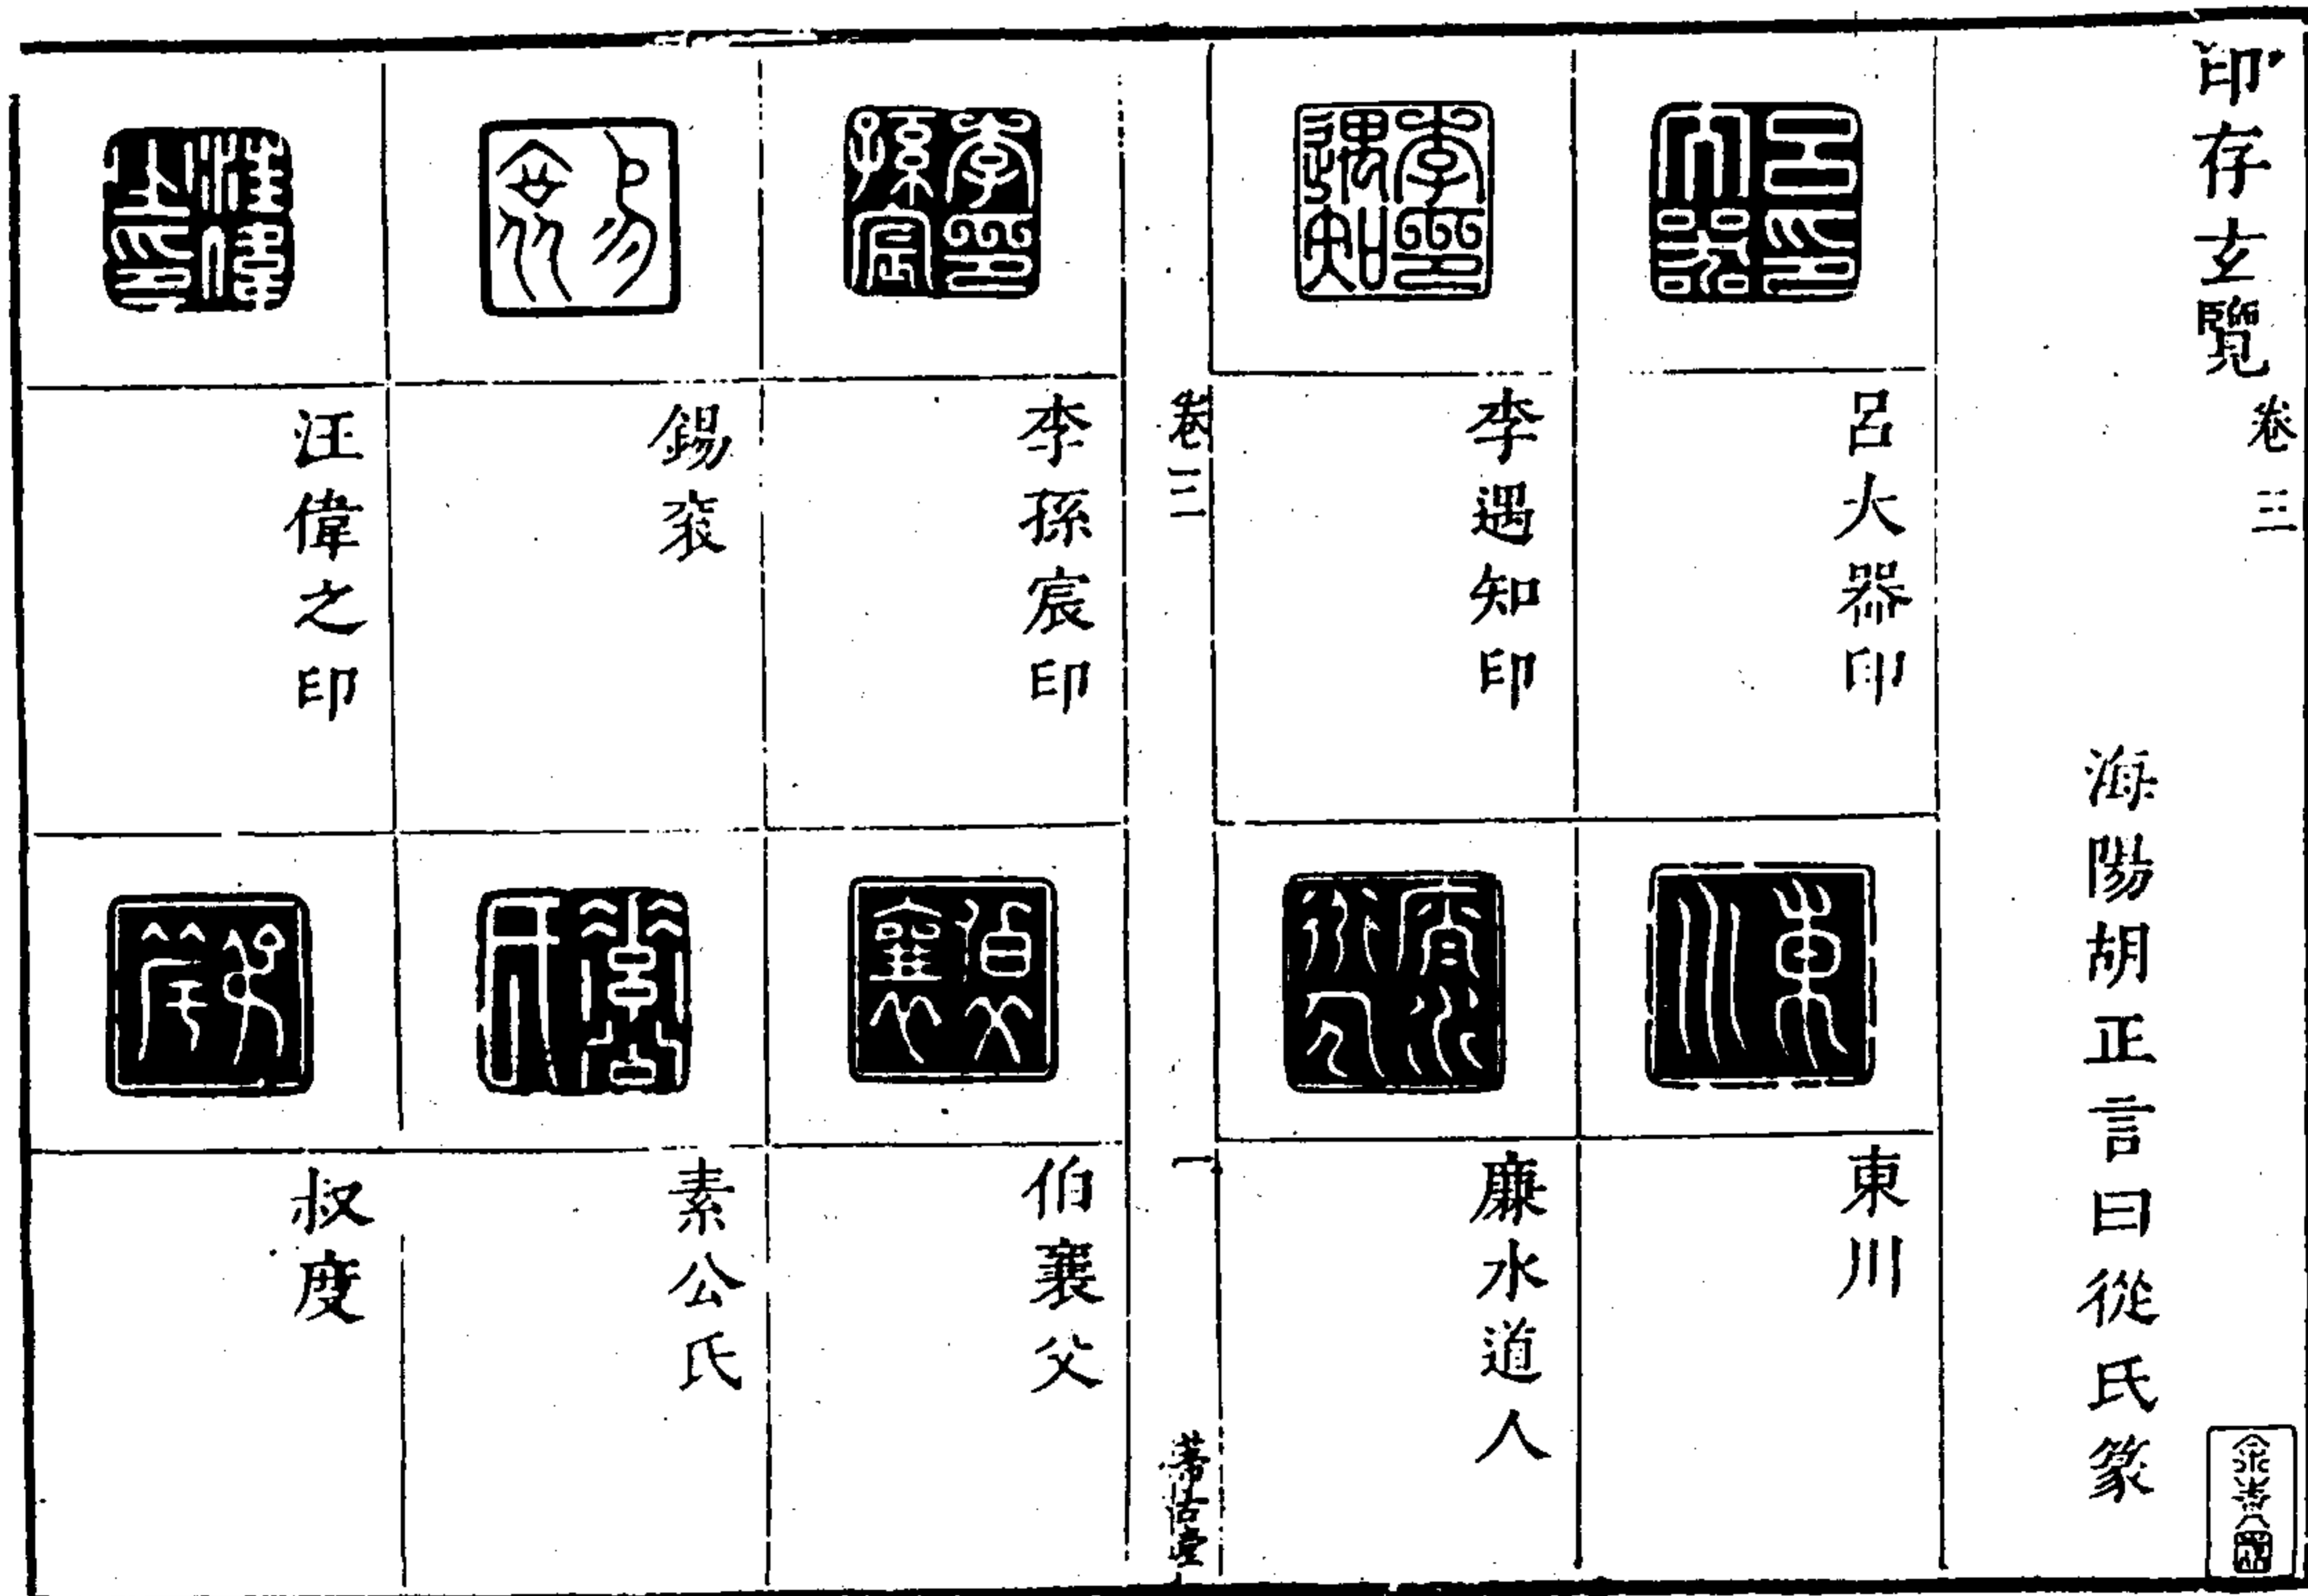 印存玄覽 卷三
海陽胡正言曰從氏篆
呂大器印
東川
李遇知印
廉水道人
卷三
一
蒂古堂
李孫宸印
伯襄父
錫袞
素公氏
汪偉之印
叔度